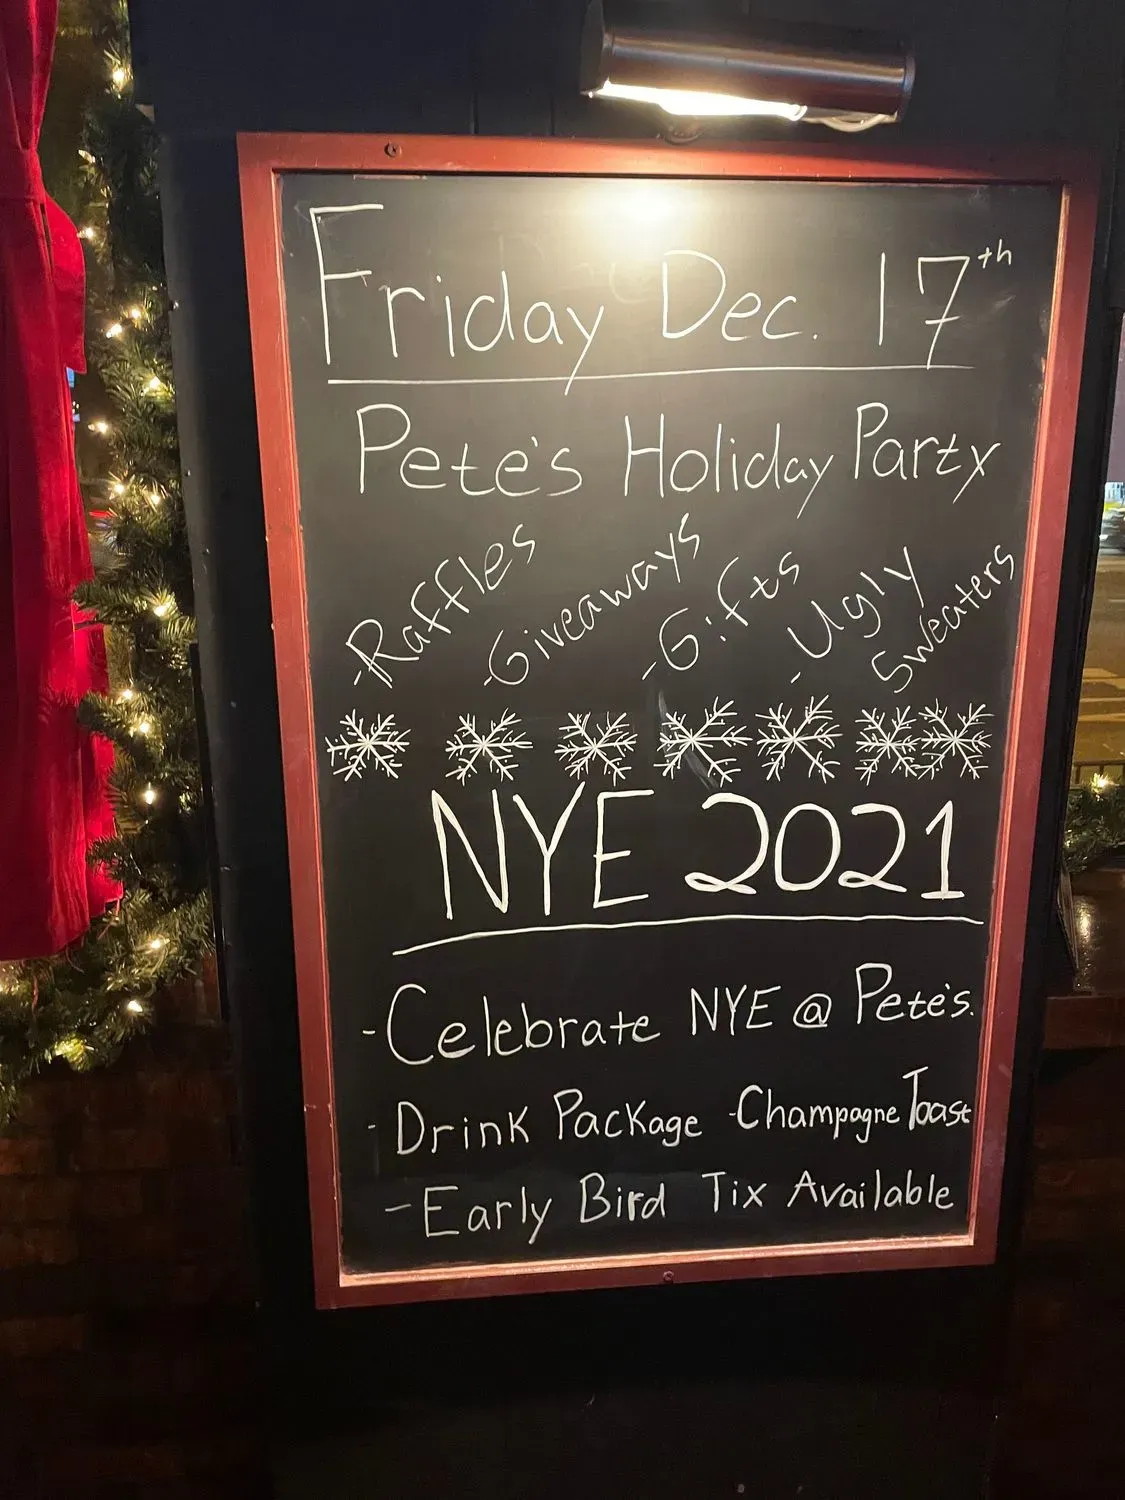 Friday Dec. 17th
Pete's Holiday Party
-Raffles -Giveaways -Gifts -Ugly Sweaters
NYE 2021
-Celebrate NYE @ Pete's.
- Drink Package -Champagne Toast
- Early Bird Tix Available